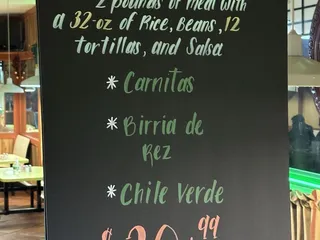 2 pounds of meat with
a 32-oz of Rice, Beans, 12
tortillas, and Salsa
* Carnitas
* Birria de
Rez
* Chile Verde
$ 99